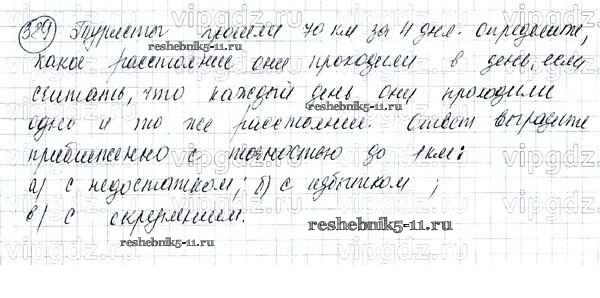 329) Туристы прошли 70 км за 4 дня. Определите,
какое расстояние они проходили в день, если
считать, что каждый день они проходили
одно и то же расстояние. Ответ выразите
приближенно с точностью до 1 км:
а) с недостатком; б) с избытком;
в) с округлением.
reshebnik5-11.ru
reshebnik5-11.ru
reshebnik5-11.ru
reshebnik5-11.ru
vipgdz.ru